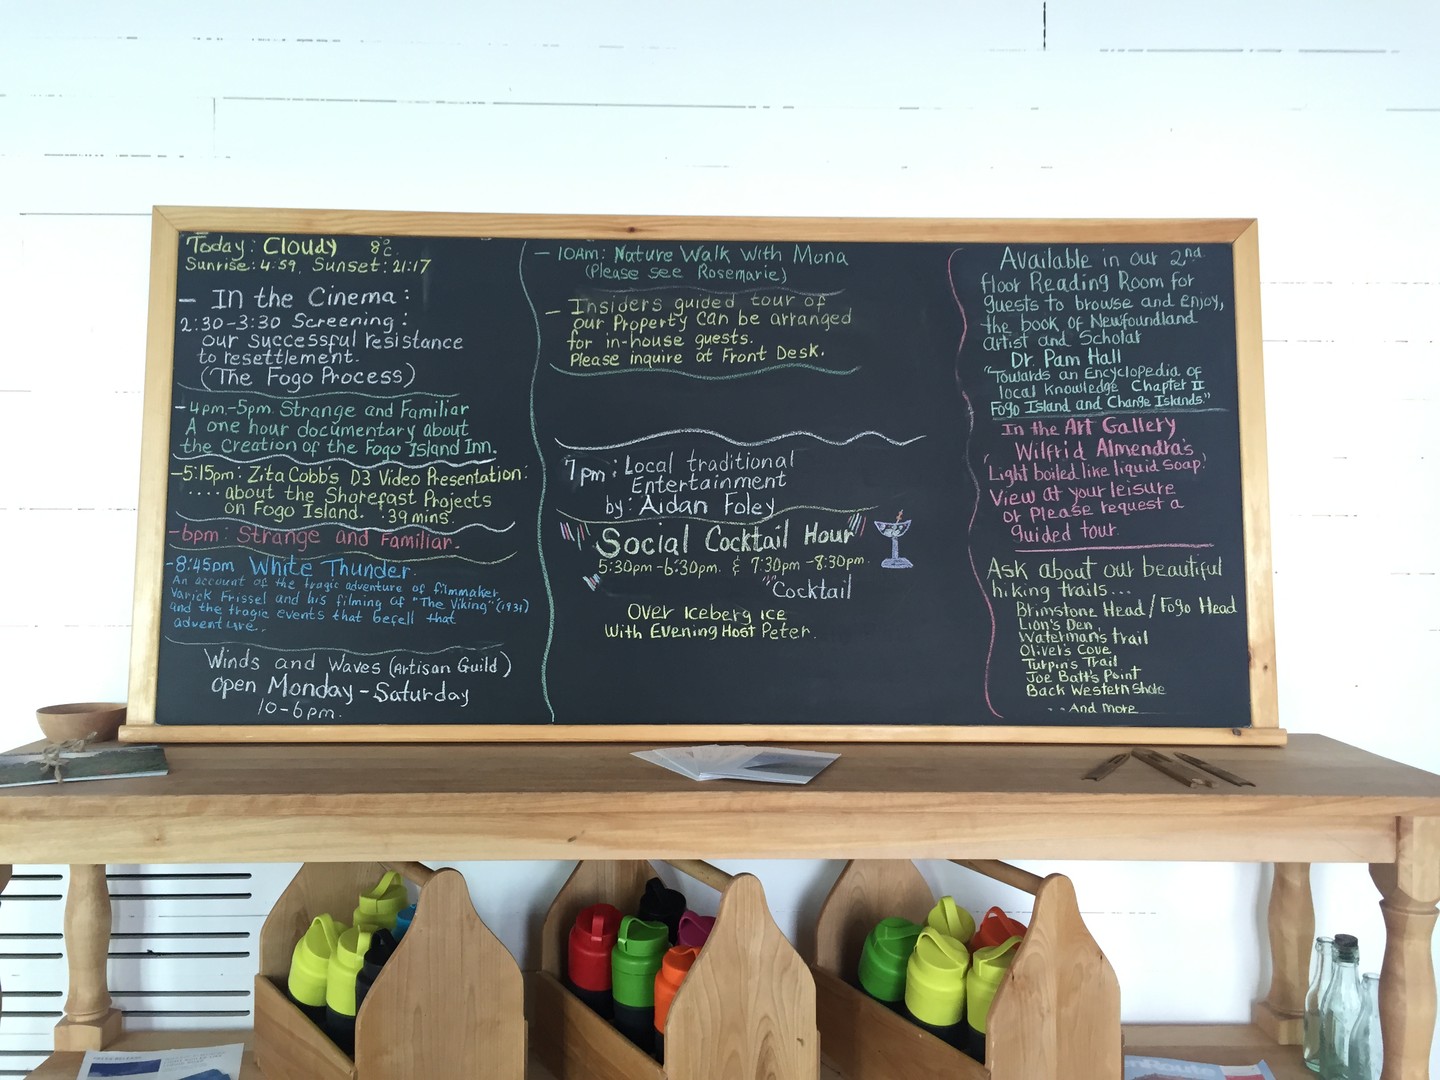 Today: Cloudy 8°C
Sunrise: 4:59. Sunset: 21:17
- In the Cinema:
2:30-3:30 Screening:
our successful resistance
to resettlement.
(The Fogo Process)
-4pm.-5pm. Strange and Familiar
A one hour documentary about
the creation of the Fogo Island Inn.
-5:15pm: Zita Cobb's D3 Video Presentation:
.... about the Shorefast Projects
on Fogo Island. :39 mins.
-6pm: Strange and Familiar.
-8:45pm White Thunder.
An account of the tragic adventure of filmmaker
Varick Frissel and his filming of "The Viking" (1931)
and the tragic events that befell that
adventure..
Winds and Waves (Artisan Guild)
open Monday - Saturday
10-6pm.
- 10Am: Nature Walk With Mona
(Please see Rosemarie)
- Insiders guided tour of
our Property Can be arranged
for in-house guests.
Please inquire at Front Desk.
7pm: Local traditional
Entertainment
by: Aidan Foley
Social Cocktail Hour
5:30pm-6:30pm. & 7:30pm-8:30pm.
Cocktail
Over Iceberg ice
With Evening Host Peter.
Available in our 2nd
floor Reading Room for
guests to browse and enjoy,
the book of Newfoundland
artist and Scholar
Dr. Pam Hall
"Towards an Encyclopedia of
local Knowledge Chapter II
Fogo Island and Change Islands."
In the Art Gallery
Wilfrid Almendra's
'Light boiled like liquid soap.'
View at your leisure
or Please request a
guided tour.
Ask about our beautiful
hiking trails...
Brimstone Head / Fogo Head
Lion's Den
Waterman's trail
Oliver's Cove
Turpin's Trail
Joe Batt's Point
Back Western Shore
..And more